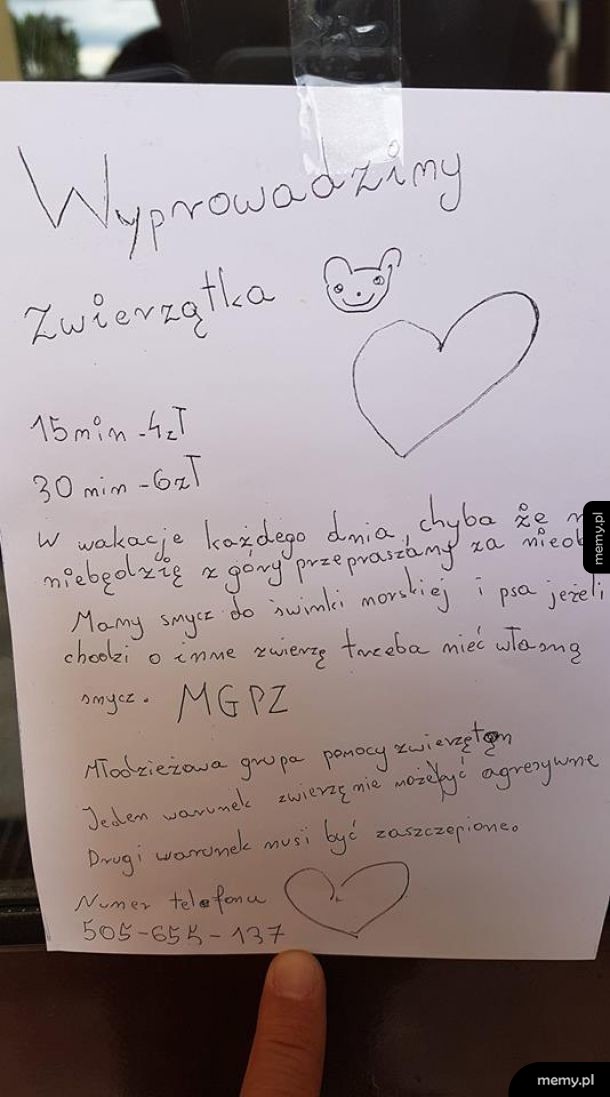 Wyprowadzimy
zwierzątka
15min - 4zł
30 min - 6zł
W wakacje każdego dnia, chyba że
niebędzie z góry przepraszamy za
Mamy smycz do świnki morskiej i psa jeżeli
chodzi o inne zwierzę trzeba mieć własną
smycz. MGPZ
Młodzieżowa grupa pomocy zwierzętom
Jeden warunek zwierzę nie może być agresywne
Drugi warunek musi być zaszczepione.
Numer telefonu
505-655-137
memy.pl
memy.pl